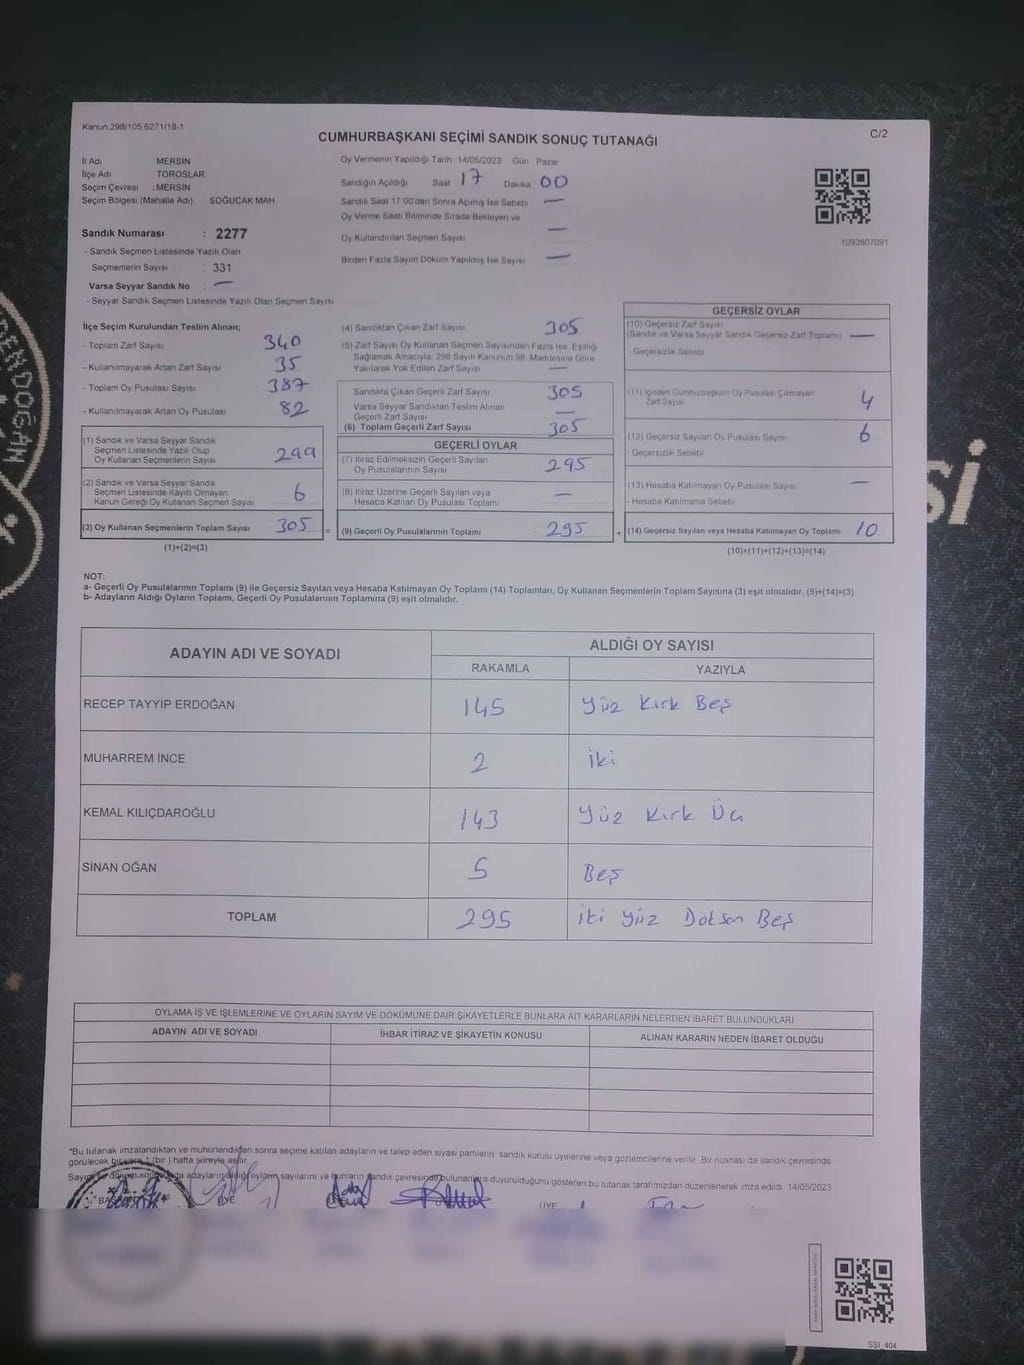 Kanun:298/105,6271/18-1
C/2
CUMHURBAŞKANI SEÇİMİ SANDIK SONUÇ TUTANAĞI
İl Adı MERSİN
İlçe Adı TOROSLAR
Seçim Çevresi : MERSİN
Seçim Bölgesi (Mahalle Adı) : SOĞUCAK MAH
Oy Vermenin Yapıldığı Tarih 14/05/2023 Gün Pazar
Sandığın Açıldığı Saat 17 Dakika 00
Sandık Saat 17:00'den Sonra Açılmış İse Sebebi —
Oy Verme Saati Bitiminde Sırada Bekleyen ve
Oy Kullandırılan Seçmen Sayısı —
Birden Fazla Sayım Döküm Yapılmış İse Sayısı —
1093807091
Sandık Numarası : 2277
- Sandık Seçmen Listesinde Yazılı Olan
Seçmenlerin Sayısı : 331
Varsa Seyyar Sandık No : —
- Seyyar Sandık Seçmen Listesinde Yazılı Olan Seçmen Sayısı
İlçe Seçim Kurulundan Teslim Alınan;
- Toplam Zarf Sayısı 340
- Kullanılmayarak Artan Zarf Sayısı 35
- Toplam Oy Pusulası Sayısı 387
- Kullanılmayarak Artan Oy Pusulası 82
(1) Sandık ve Varsa Seyyar Sandık
Seçmen Listesinde Yazılı Olup
Oy Kullanan Seçmenlerin Sayısı 299
(2) Sandık ve Varsa Seyyar Sandık
Seçmen Listesinde Kayıtlı Olmayan
Kanun Gereği Oy Kullanan Seçmen Sayısı 6
(3) Oy Kullanan Seçmenlerin Toplam Sayısı 305 =
(1)+(2)=(3)
(4) Sandıktan Çıkan Zarf Sayısı 305
(5) Zarf Sayısı Oy Kullanan Seçmen Sayısından Fazla İse, Eşitliği
Sağlamak Amacıyla; 298 Sayılı Kanunun 98. Maddesine Göre
Yakılarak Yok Edilen Zarf Sayısı —
Sandıkta Çıkan Geçerli Zarf Sayısı 305
Varsa Seyyar Sandıktan Teslim Alınan
Geçerli Zarf Sayısı —
(6) Toplam Geçerli Zarf Sayısı 305
GEÇERLİ OYLAR
(7) İtiraz Edilmeksizin Geçerli Sayılan
Oy Pusulalarının Sayısı 295
(8) İtiraz Üzerine Geçerli Sayılan veya
Hesaba Katılan Oy Pusulası Toplamı —
(9) Geçerli Oy Pusulalarının Toplamı 295 +
GEÇERSİZ OYLAR
(10) Geçersiz Zarf Sayısı
(Sandık ve Varsa Seyyar Sandık Geçersiz Zarf Toplamı) —
- Geçersizlik Sebebi
(11) İçinden Cumhurbaşkanı Oy Pusulası Çıkmayan
Zarf Sayısı 4
(12) Geçersiz Sayılan Oy Pusulası Sayısı 6
- Geçersizlik Sebebi
(13) Hesaba Katılmayan Oy Pusulası Sayısı —
- Hesaba Katılmama Sebebi
(14) Geçersiz Sayılan veya Hesaba Katılmayan Oy Toplamı 10
(10)+(11)+(12)+(13)=(14)
NOT:
a- Geçerli Oy Pusulalarının Toplamı (9) ile Geçersiz Sayılan veya Hesaba Katılmayan Oy Toplamı (14) Toplamları, Oy Kullanan Seçmenlerin Toplam Sayısına (3) eşit olmalıdır. (9)+(14)=(3)
b- Adayların Aldığı Oyların Toplamı, Geçerli Oy Pusulalarının Toplamına (9) eşit olmalıdır.
ADAYIN ADI VE SOYADI
ALDIĞI OY SAYISI
RAKAMLA YAZIYLA
RECEP TAYYİP ERDOĞAN 145 Yüz Kırk Beş
MUHARREM İNCE 2 İki
KEMAL KILIÇDAROĞLU 143 Yüz Kırk Üç
SİNAN OĞAN 5 Beş
TOPLAM 295 İki Yüz Doksan Beş
OYLAMA İŞ VE İŞLEMLERİNE VE OYLARIN SAYIM VE DÖKÜMÜNE DAİR ŞİKAYETLERLE BUNLARA AİT KARARLARIN NELERDEN İBARET BULUNDUKLARI
ADAYIN ADI VE SOYADI İHBAR İTİRAZ VE ŞİKAYETİN KONUSU ALINAN KARARIN NEDEN İBARET OLDUĞU
*Bu tutanak imzalandıktan ve mühürlendikten sonra seçime katılan adayların ve talep eden siyasi partilerin sandık kurulu üyelerine veya gözlemcilerine verilir. Bir nüshası da sandık çevresinde
görülecek bir yere 1 (bir ) hafta süreyle asılır.
Sayım ve döküm sonucunda adayların aldığı oyların sayılarını ve bunların sandık çevresinde bulunanlara duyurulduğunu gösteren bu tutanak tarafımızdan düzenlenerek imza edildi. 14/05/2023
BAŞKAN ÜYE ÜYE
SSİ_404
ENDOĞAN
si